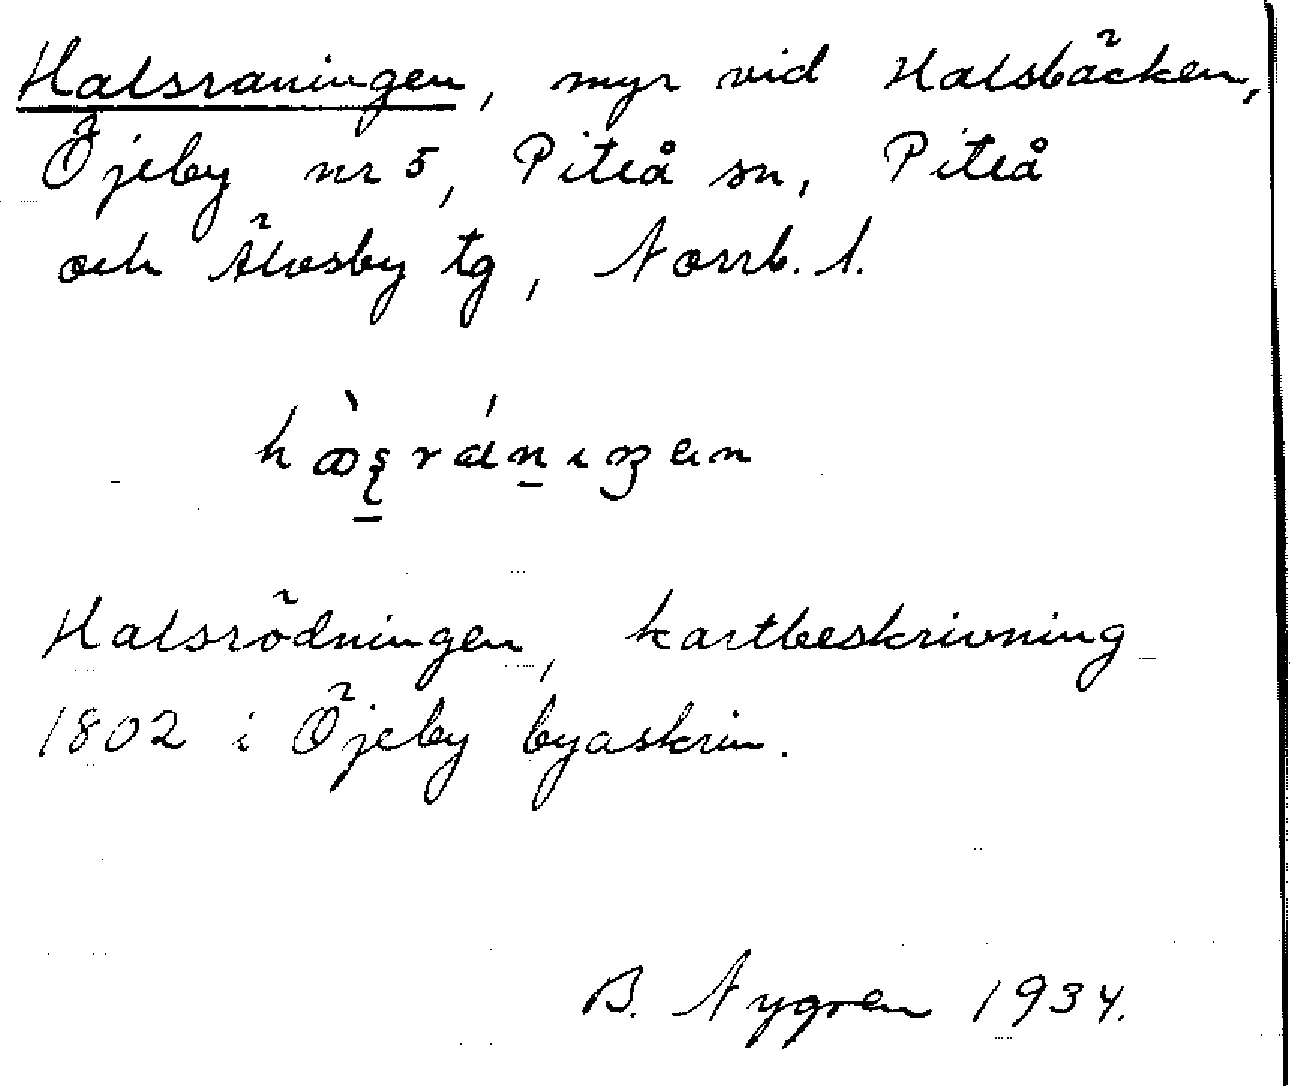 Halsraningen, myr vid Halsbäcken,
Öjeby nr 5, Piteå sn, Piteå
och Älvsby tg, Norrb. l.
Halsrödningen, kartbeskrivning
1802 i Öjeby byaskrin.
B. Nygren 1934.